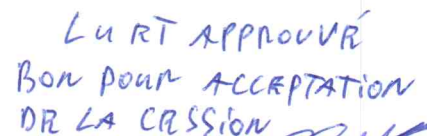 LU ET APPROUVÉ
BON POUR ACCEPTATION
DE LA CESSION